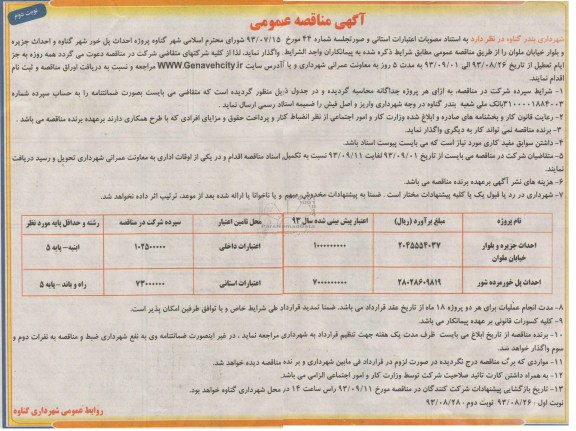 نوبت دوم
آگهی مناقصه عمومی
شهرداری بندر گناوه در نظر دارد به استناد مصوبات اعتبارات استانی و صورتجلسه شماره ۴۴ مورخ ۹۳/۰۷/۱۵ شورای محترم اسلامی شهر گناوه پروژه احداث پل خور شهر گناوه و احداث جزیره
و بلوار خیابان ملوان را از طریق مناقصه عمومی مطابق شرایط ذکره شده به پیمانکاران واجد الشرایط، واگذار نماید، لذا از کلیه شرکتهای متقاضی شرکت در مناقصه دعوت می گردد همه روزه به جز
ایام تعطیل از تاریخ ۹۳/۰۸/۲۶ الی ۹۳/۰۹/۰۱ به مدت ۵ روز به معاونت عمرانی شهرداری و یا آدرس سایت WWW.Genavehcity.ir مراجعه و نسبت به دریافت اوراق مناقصه و ثبت نام
اقدام نمایند.
۱- شرایط سپرده شرکت در مناقصه، به ازای هر پروژه جداگانه محاسبه گردیده و در جدول ذیل منظور گردیده است که متقاضی می بایست بصورت ضمانتنامه را به حساب سپرده شماره
۳۱۰۰۰۰۱۸۸۴۰۰۳ بانک ملی شعبه بندر گناوه در وجه شهرداری واریز و اصل فیش را ضمیمه اسناد رسمی ارسال نماید .
۲- رعایت قانون کار و بخشنامه های صادره و ابلاغ شده وزارت کار و امور اجتماعی از نظر انضباط کار و پرداخت حقوق و مزایای افرادی که با طرح همکاری دارند برعهده برنده مناقصه می باشد .
۳- برنده مناقصه نمی تواند کار به دیگری واگذار نماید.
۴- داشتن سوابق مفید کاری مورد نیاز است که می بایست پیوست اسناد باشد.
۵- متقاضیان شرکت در مناقصه می بایست از تاریخ ۹۳/۰۹/۰۱ لغایت ۹۳/۰۹/۱۱ نسبت به تکمیل اسناد مناقصه اقدام و در یکی از اوقات اداری به معاونت عمرانی شهرداری تحویل و رسید دریافت
نمایند.
۶- هزینه های نشر آگهی برعهده برنده مناقصه می باشد.
۷- شهرداری در رد یا قبول یک یا کلیه پیشنهادات مختار است . ضمنا به پیشنهادات مخدوش، مبهم و یا ناخوانا یا ارائه شده بعد از موعد، ترتیب اثر داده نخواهد شد.
نام پروژه مبلغ برآورد (ریال) اعتبار پیش بینی شده سال ۹۳ محل تامین اعتبار سپرده شرکت در مناقصه رشته و حداقل پایه مورد نظر
احداث جزیره و بلوار خیابان ملوان ۲۰۴۵۵۵۴۰۳۷ ۱۰۰۰۰۰۰۰۰۰ اعتبارات داخلی ۱۰۲۵۰۰۰۰۰ ابنیه – پایه ۵
احداث پل خورمرده شور ۲۸۰۲۸۶۰۹۸۱۹ ۷۰۰۰۰۰۰۰۰۰ اعتبارات استانی ۷۳۰۰۰۰۰۰ راه و باند – پایه ۵
۸- مدت انجام عملیات برای هر دو پروژه ۱۸ ماه از تاریخ عقد قرارداد می باشد. ضمنا تمدید قرارداد طی شرایط خاص و با توافق طرفین امکان پذیر است.
۹- کلیه کسورات قانونی بر عهده پیمانکار می باشد.
۱۰- برنده مناقصه از تاریخ ابلاغ می بایست ظرف مدت یک هفته جهت تنظیم قرارداد به شهرداری مراجعه نماید ، در غیر اینصورت ضمانتنامه وی به نفع شهرداری ضبط و مناقصه به نفرات دوم و
سوم واگذار خواهد شد.
۱۱- مواردی که برگ مناقصه درج نگردیده در صورت لزوم در قرارداد فی مابین شهرداری و برنده مناقصه دیده خواهد شد.
۱۲- به همراه داشتن کارت تائید صلاحیت شرکت توسط وزارت کار و امور اجتماعی الزامی می باشد.
۱۳- تاریخ بازگشایی پیشنهادات شرکت کنندگان در مناقصه مورخ ۹۳/۰۹/۱۱ راس ساعت ۱۴ در محل شهرداری گناوه خواهد بود.
نوبت اول : ۹۳/۰۸/۲۶ نوبت دوم : ۹۳/۰۸/۲۸
روابط عمومی شهرداری گناوه